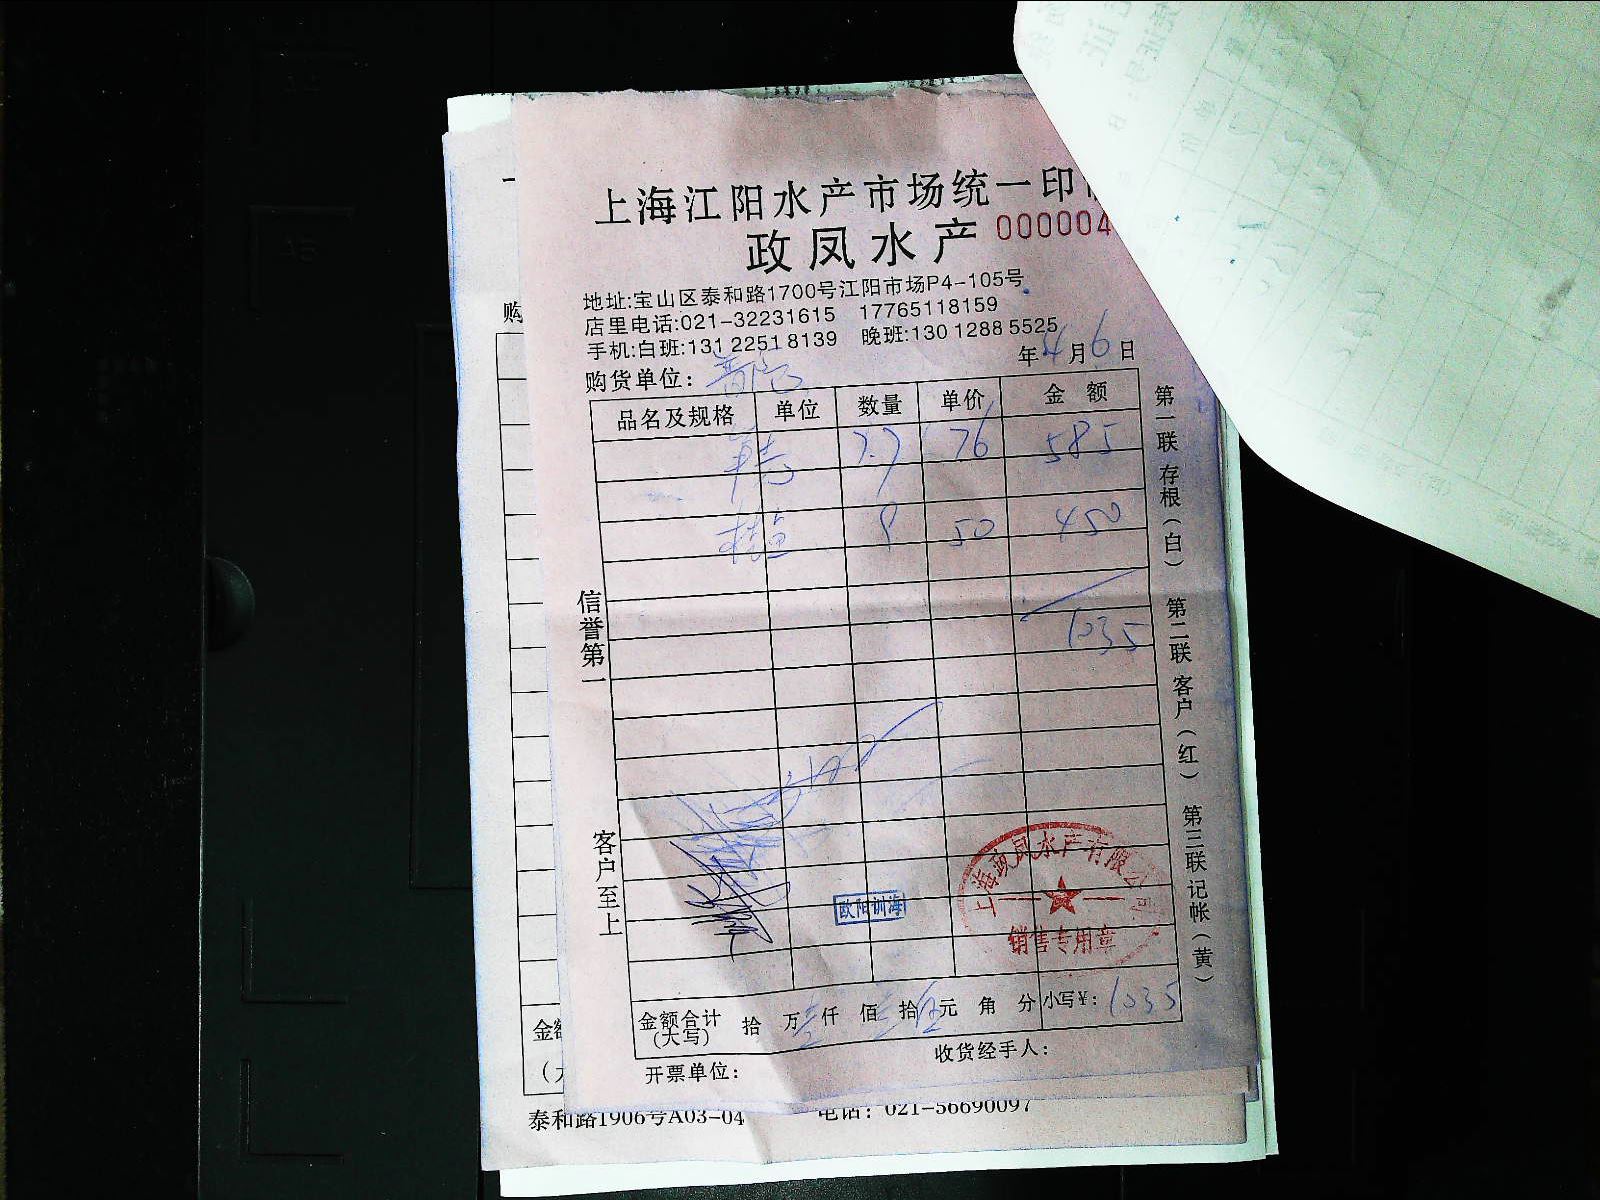 上海江阳水产市场统一印
政凤水产 000004
地址:宝山区泰和路1700号江阳市场P4-105号
店里电话:021-32231615 17765118159
手机:白班:131 2251 8139 晚班:130 1288 5525
年4月6日
购货单位:
品名及规格 单位 数量 单价 金额
7.7 76 585
桂鱼 9 50 450
1035
信誉第一
客户至上
第一联存根(白) 第二联客户(红) 第三联记帐(黄)
欧阳训海
上海政凤水产有限公司
销售专用章
金额合计(大写) 拾 万 仟 佰 拾 元 角 分 小写¥: 1035
开票单位: 收货经手人:
购
金
泰和路1906号A03-04 电话: 021-56690097